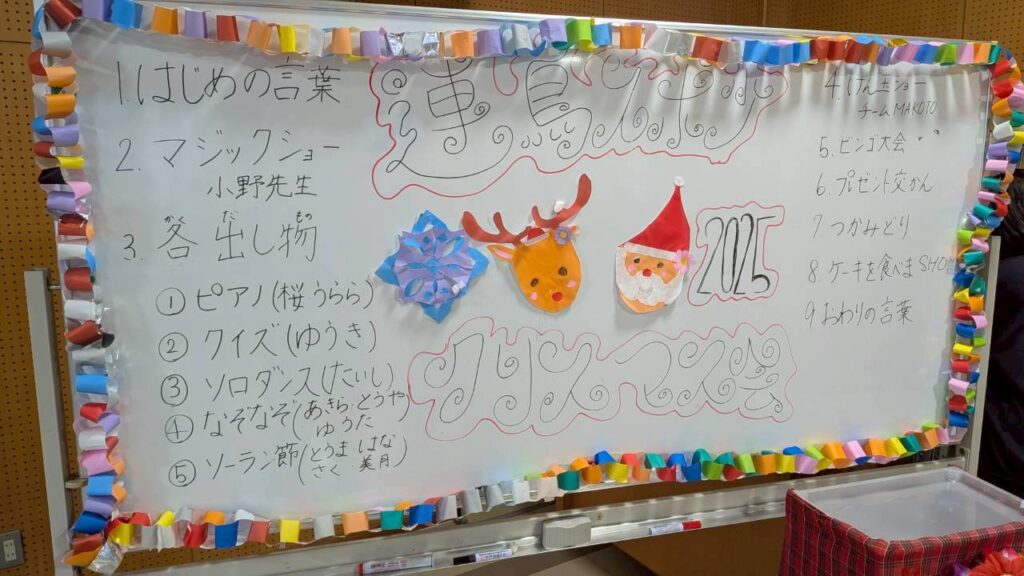 1. はじめの言葉
2. マジックショー
小野先生
3. 各出し物
かく だ もの
① ピアノ(桜 うらら)
② クイズ(ゆうき)
③ ソロダンス(たいし)
④ なぞなぞ(あきら とうや
ゆうた)
⑤ ソーラン節(とうま はな
さく 美月)
連鳥スポ少
2025
クリスマス会
4. けん玉ショー
チームMAKOTO
5. ビンゴ大会
6. プレゼント交かん
7. つかみどり
8. ケーキを食べまSHO
9 おわりの言葉